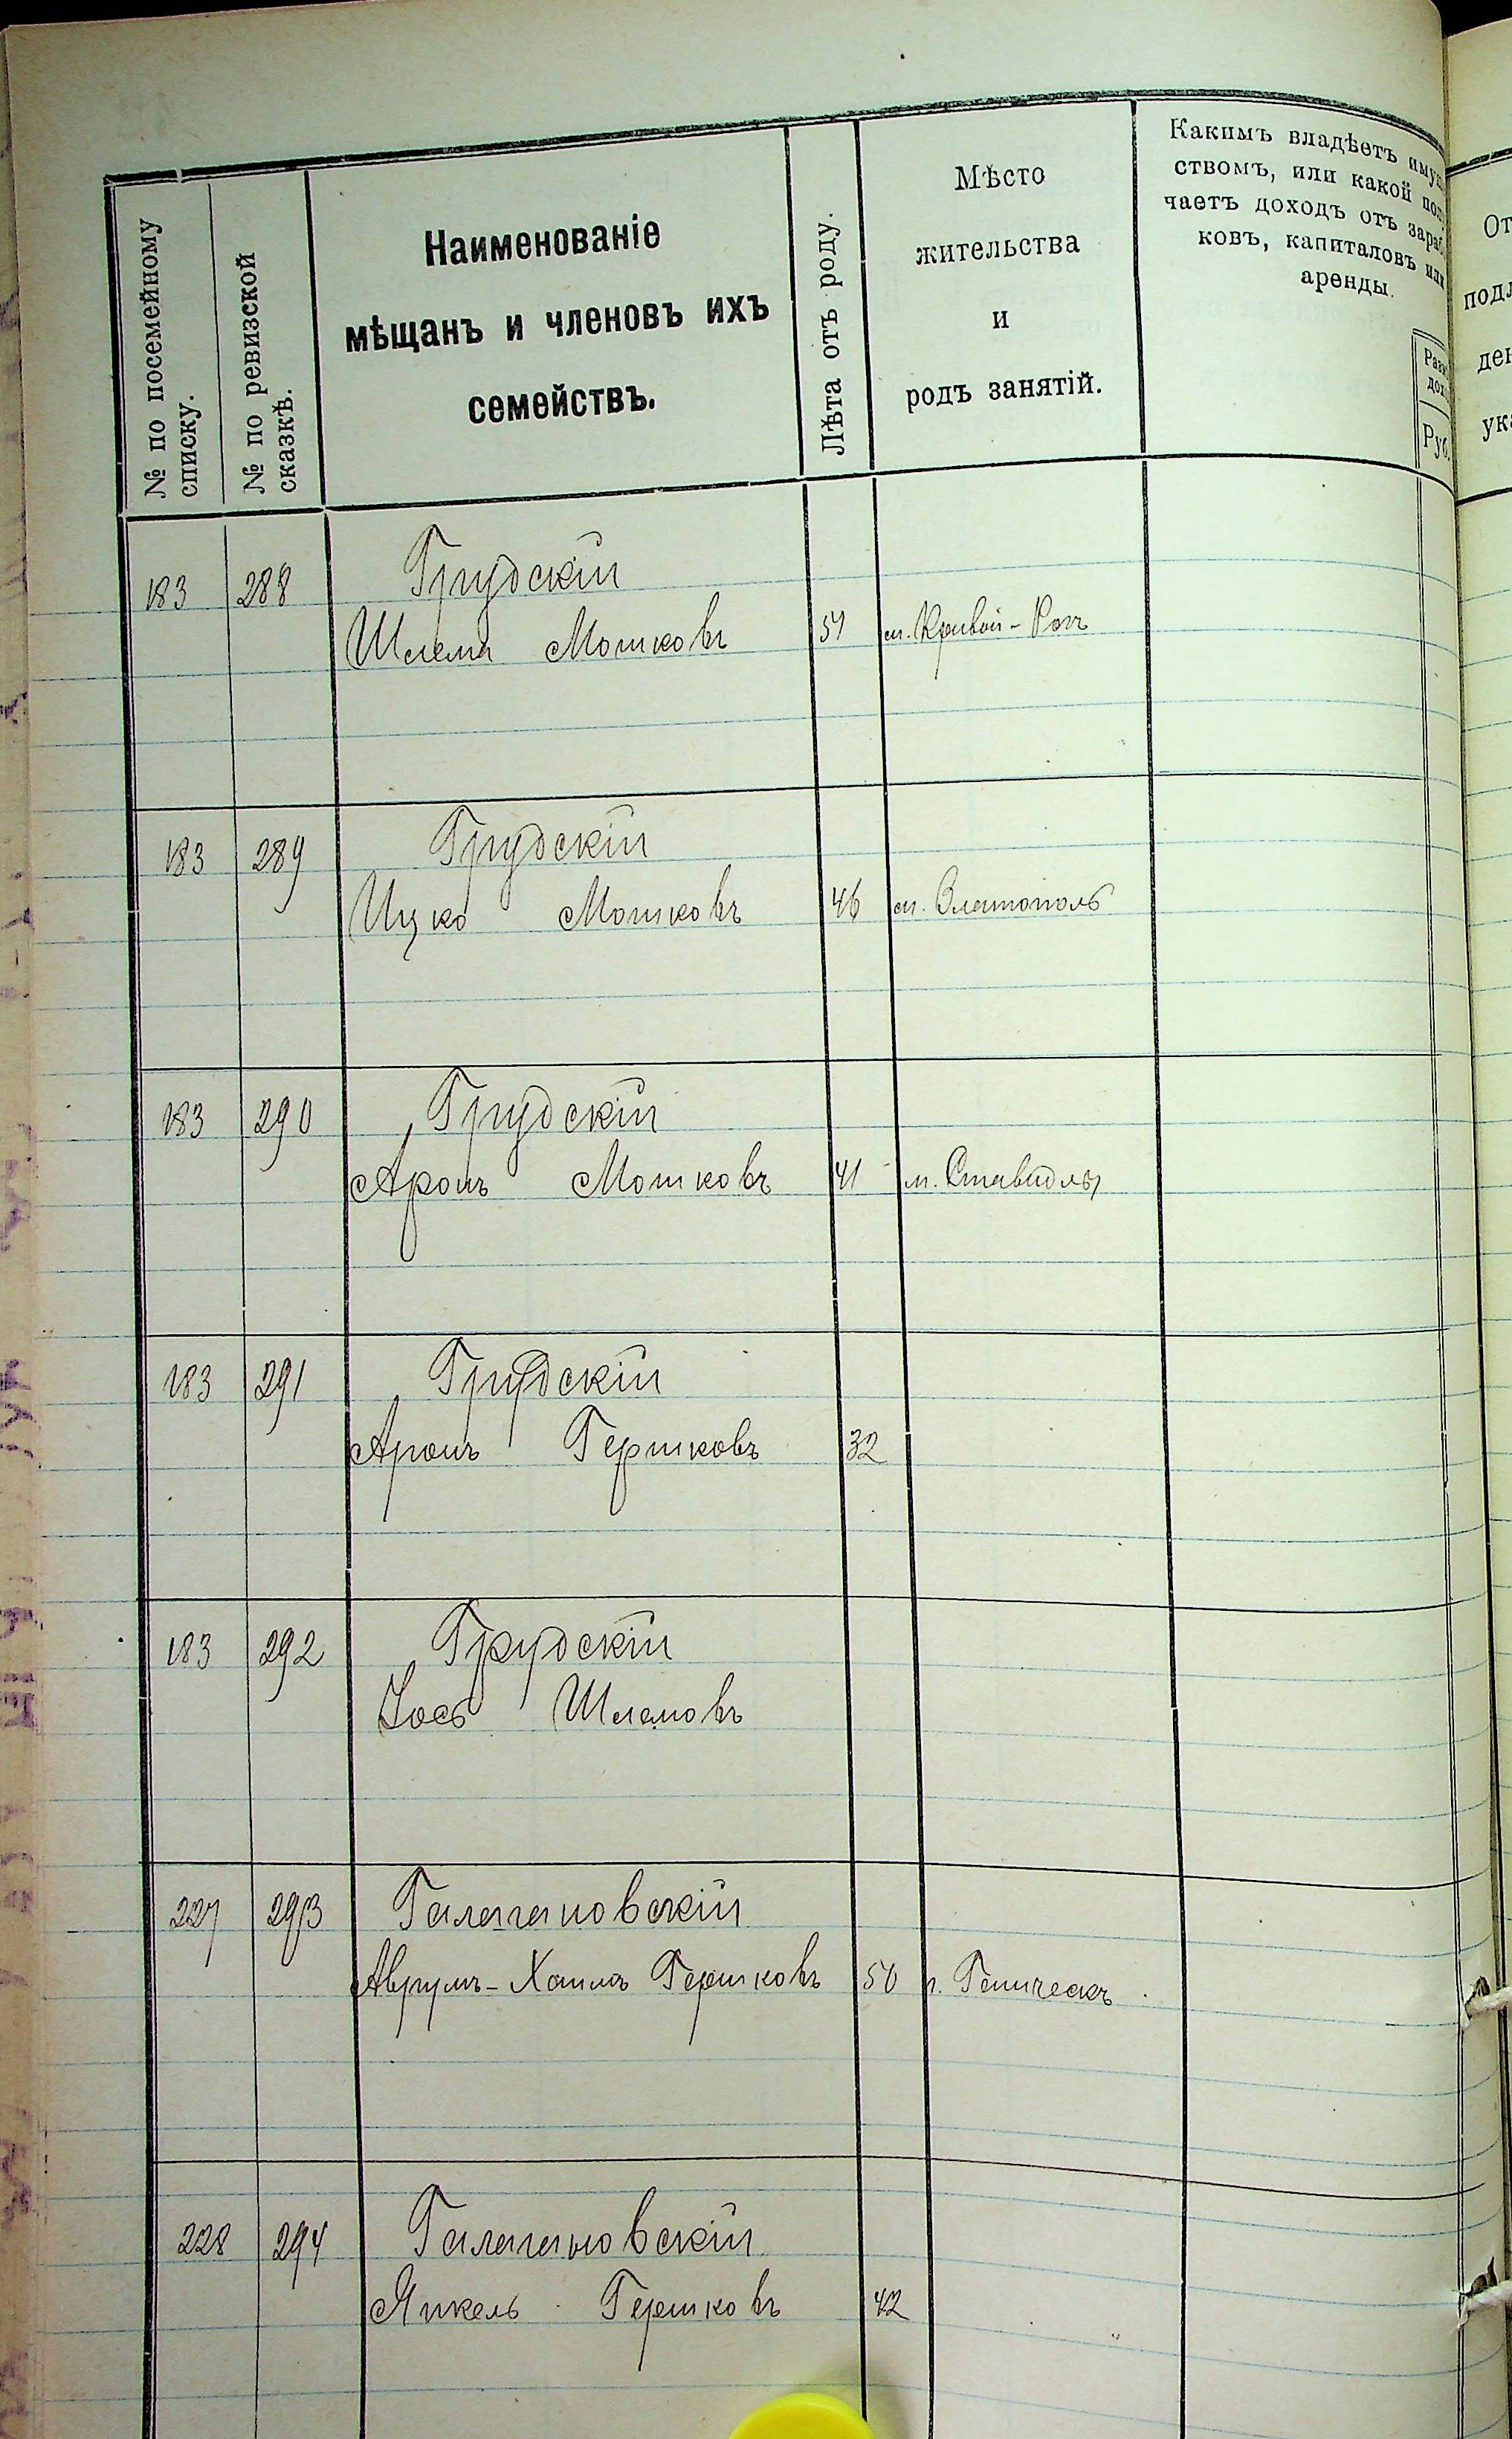 № по посемейному
списку.
№ по ревизской
сказкѣ.
Наименованіе
мѣщанъ и членовъ ихъ
семействъ.
Лѣта отъ роду.
Мѣсто
жительства
и
родъ занятій.
Какимъ владѣетъ
ствомъ, или какой
чаетъ доходъ отъ
ковъ, капиталовъ или
аренды.
Руб.
183 288 Грудскій
Шлема Мошковъ м. Кривой-Рогъ
183 289 Грудскій
Ицко Мошковъ 46 м. Златополь
183 290 Грудскій
Аронъ Мошковъ 41 м. Ставидлы
183 291 Грудскій
Аронъ Гершковъ 32
183 292 Грудскій
Іось Шлемовъ
227 293 Галагановскій
Аврумъ-Хаимъ Гершковъ 50 г. Геническъ
228 294 Галагановскій
Янкель Гершковъ 42